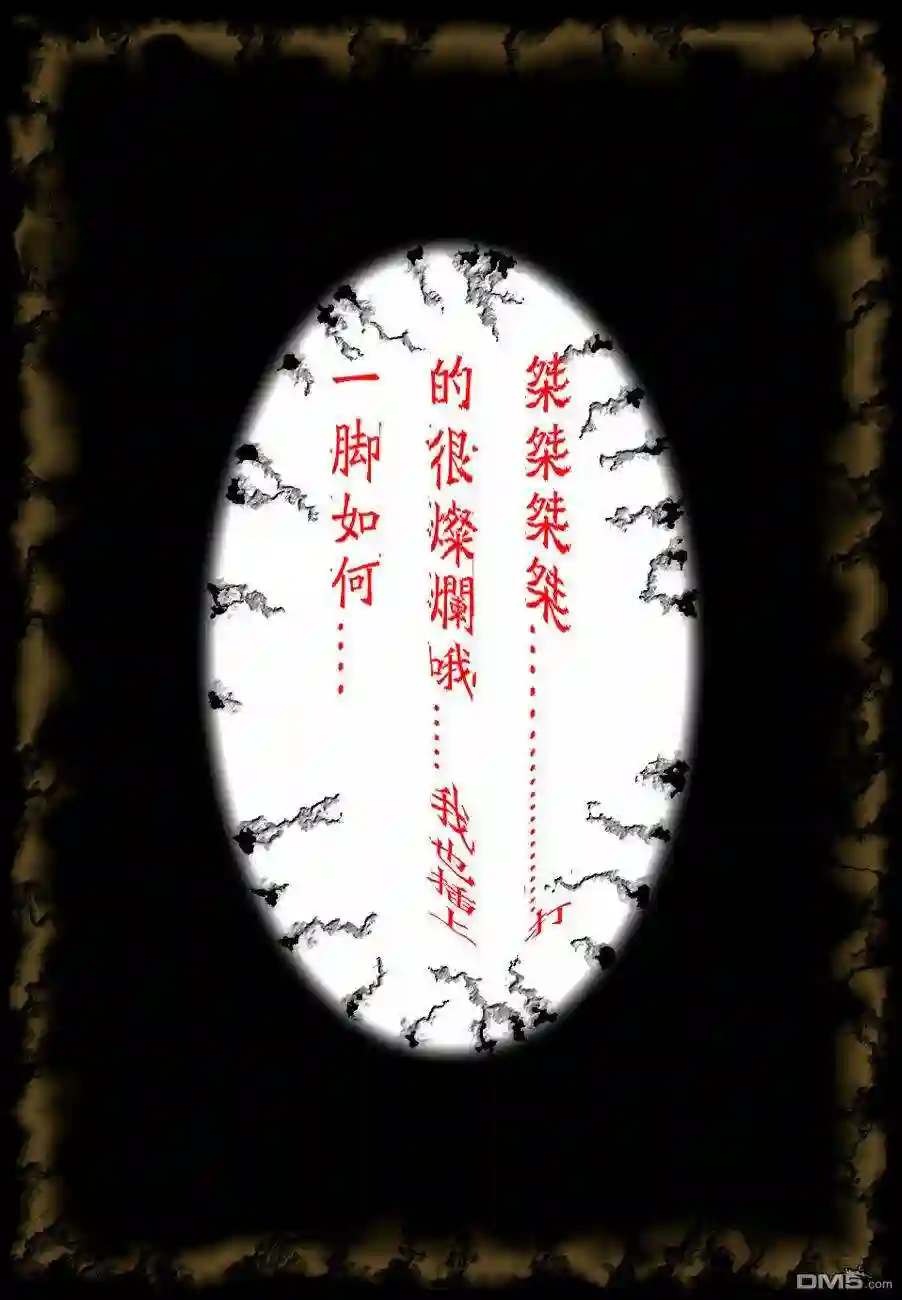 桀桀桀桀……………………打
的很燦爛哦……我也插上
一脚如何……
DM5.com